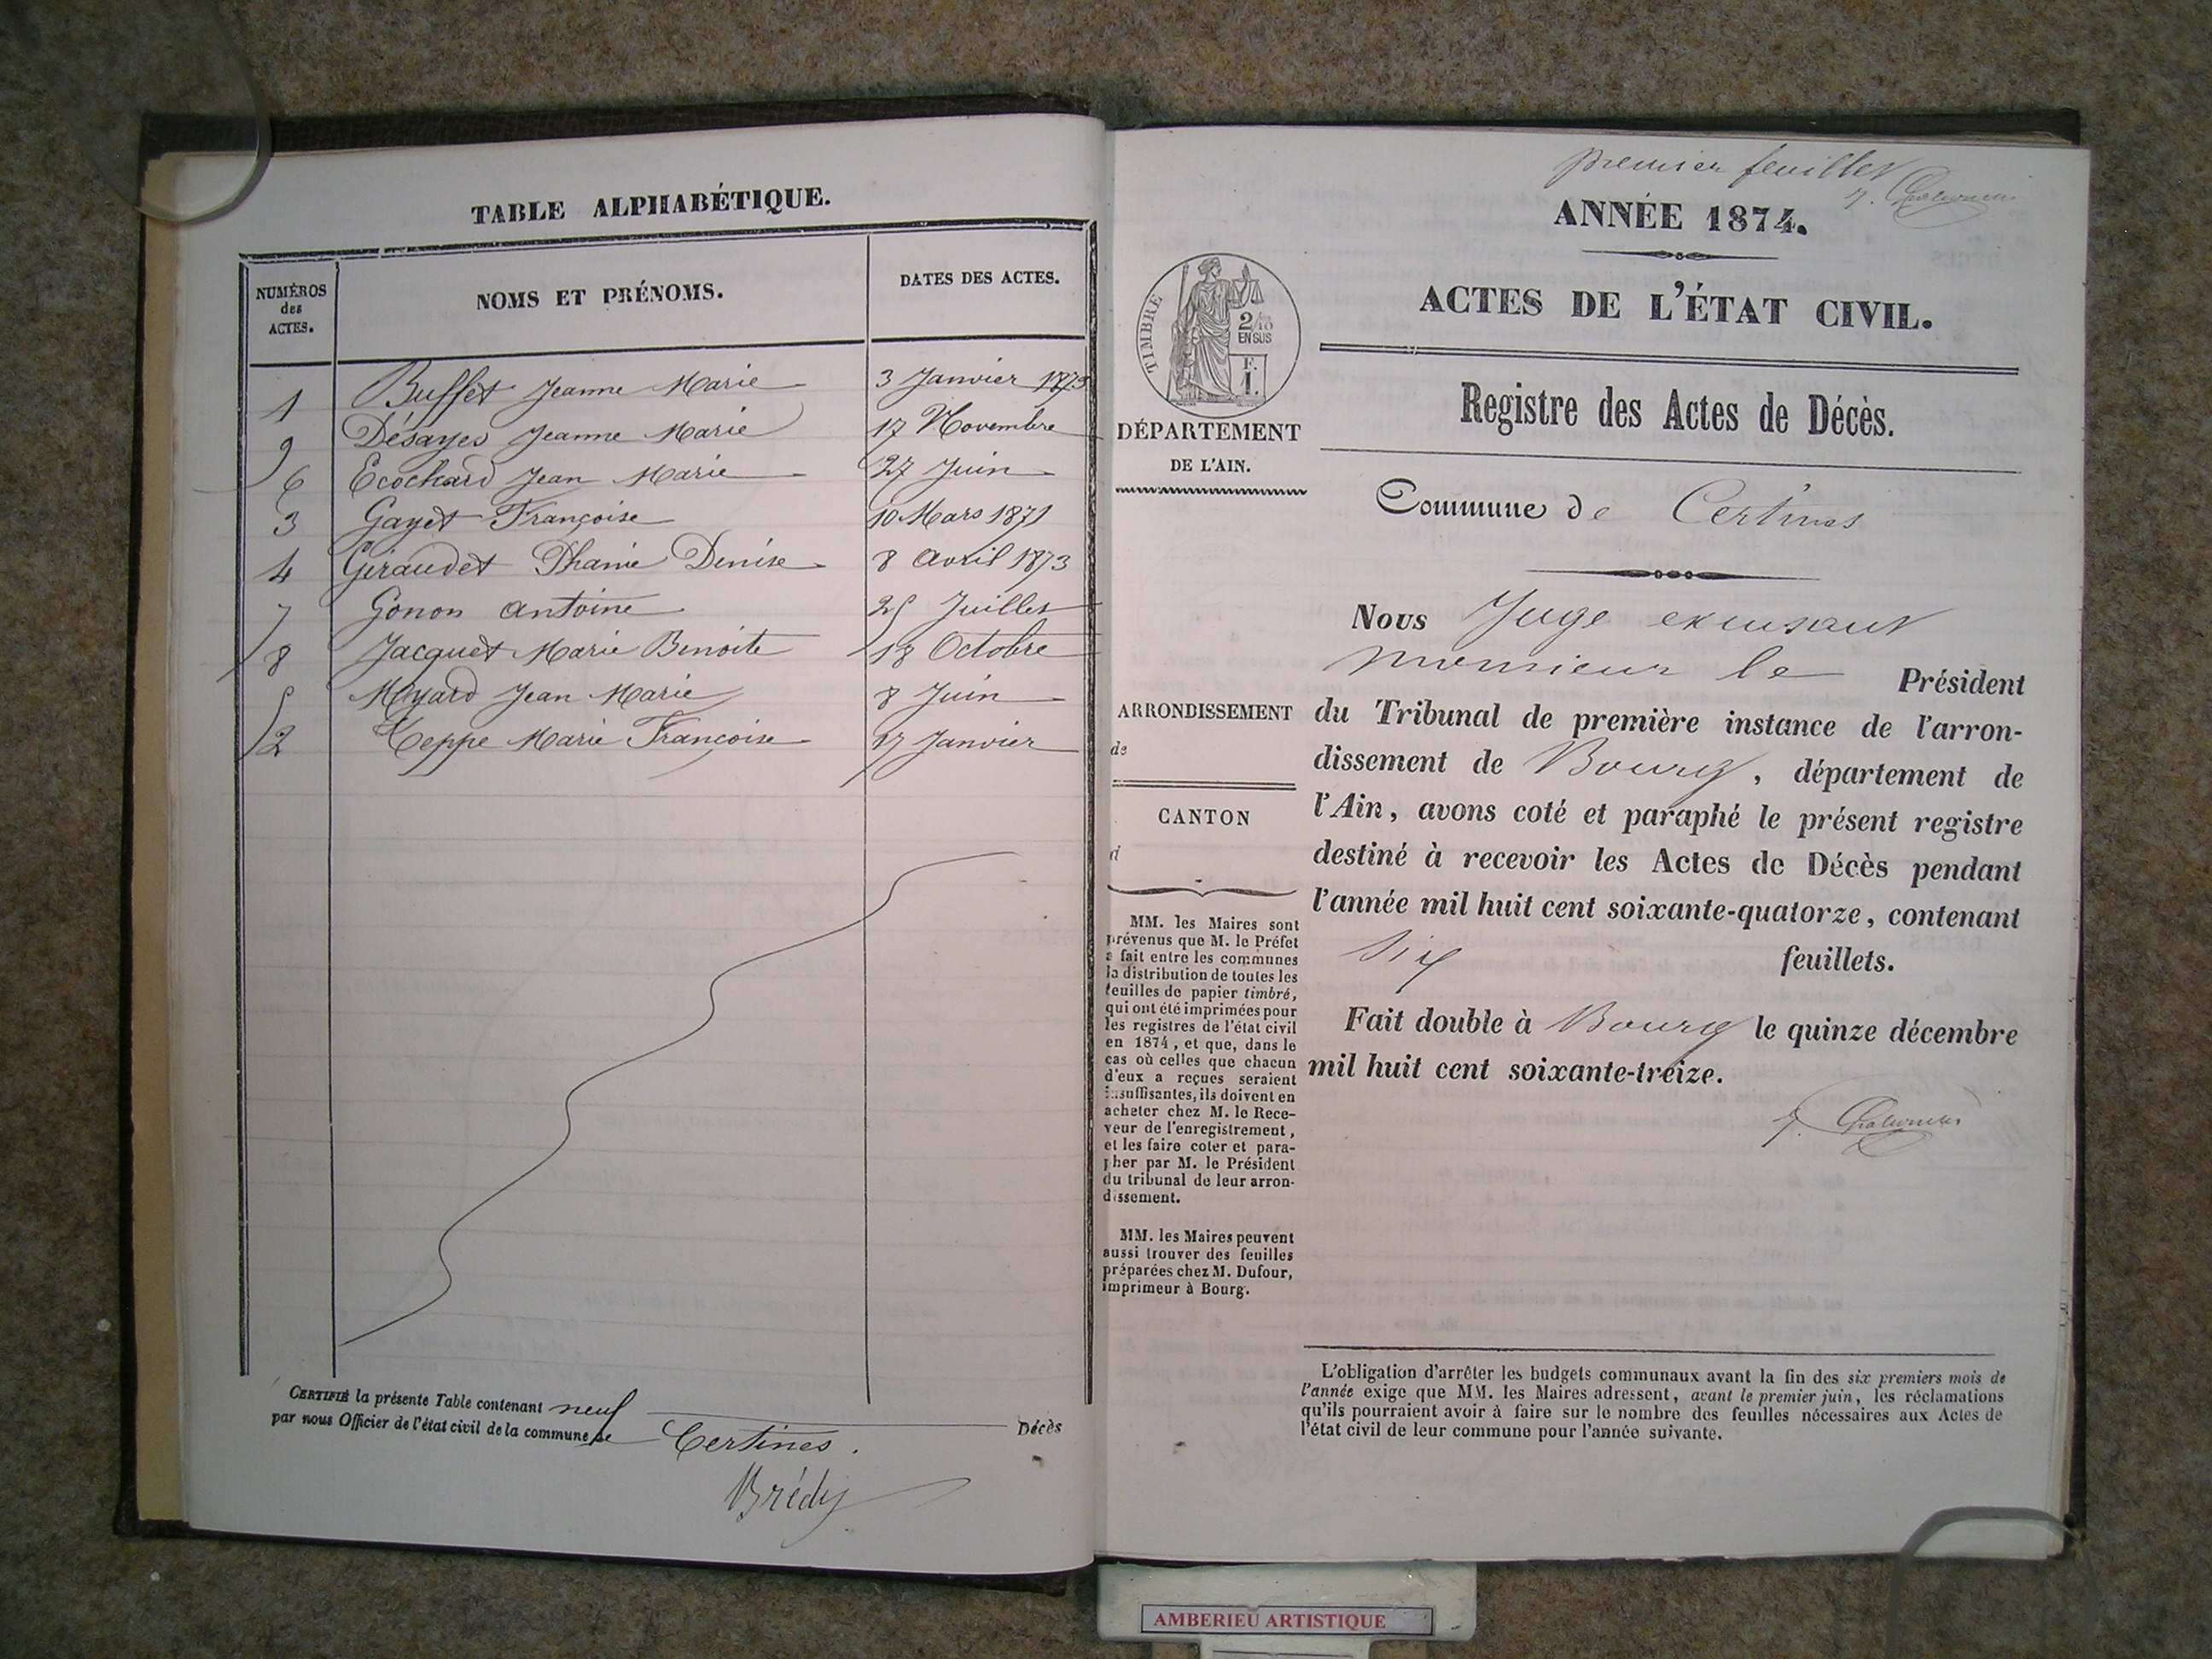 TABLE ALPHABÉTIQUE.
NUMÉROS des ACTES.
NOMS ET PRÉNOMS.
DATES DES ACTES.
1 Buffet Jeanne Marie 3 Janvier 1873
9 Désayes Jeanne Marie 17 Novembre
6 Ecochard Jean Marie 27 Juin
3 Gayet Françoise 10 Mars 1871
4 Géraudet Phanie Denise 8 Avril 1873
7 Gonon Antoine 25 Juillet
8 Jacquet Marie Benoite 18 Octobre
5 Moyard Jean Marie 8 Juin
2 Teppe Marie Françoise 17 Janvier
CERTIFIÉ la présente Table contenant neuf Décès
par nous Officier de l'état civil de la commune de Certines.
Brédy
premier feuillet
ANNÉE 1874.
ACTES DE L'ÉTAT CIVIL.
TIMBRE
2/10
EN SUS
F.
1.
DÉPARTEMENT
DE L'AIN.
Registre des Actes de Décès.
Commune de Certines
ARRONDISSEMENT
de
CANTON
d
MM. les Maires sont
prévenus que M. le Préfet
a fait entre les communes
la distribution de toutes les
feuilles de papier timbré,
qui ont été imprimées pour
les registres de l'état civil
en 1874, et que, dans le
cas où celles que chacun
d'eux a reçues seraient
insuffisantes, ils doivent en
acheter chez M. le Rece-
veur de l'enregistrement,
et les faire coter et para-
pher par M. le Président
du tribunal de leur arron-
dissement.
MM. les Maires peuvent
aussi trouver des feuilles
préparées chez M. Dufour,
imprimeur à Bourg.
Nous Juge excusant
monsieur le Président
du Tribunal de première instance de l'arron-
dissement de Bourg, département de
l'Ain, avons coté et paraphé le présent registre
destiné à recevoir les Actes de Décès pendant
l'année mil huit cent soixante-quatorze, contenant
six feuillets.
Fait double à Bourg le quinze décembre
mil huit cent soixante-treize.
L'obligation d'arrêter les budgets communaux avant la fin des six premiers mois de
l'année exige que MM. les Maires adressent, avant le premier juin, les réclamations
qu'ils pourraient avoir à faire sur le nombre des feuilles nécessaires aux Actes de
l'état civil de leur commune pour l'année suivante.
AMBERIEU ARTISTIQUE